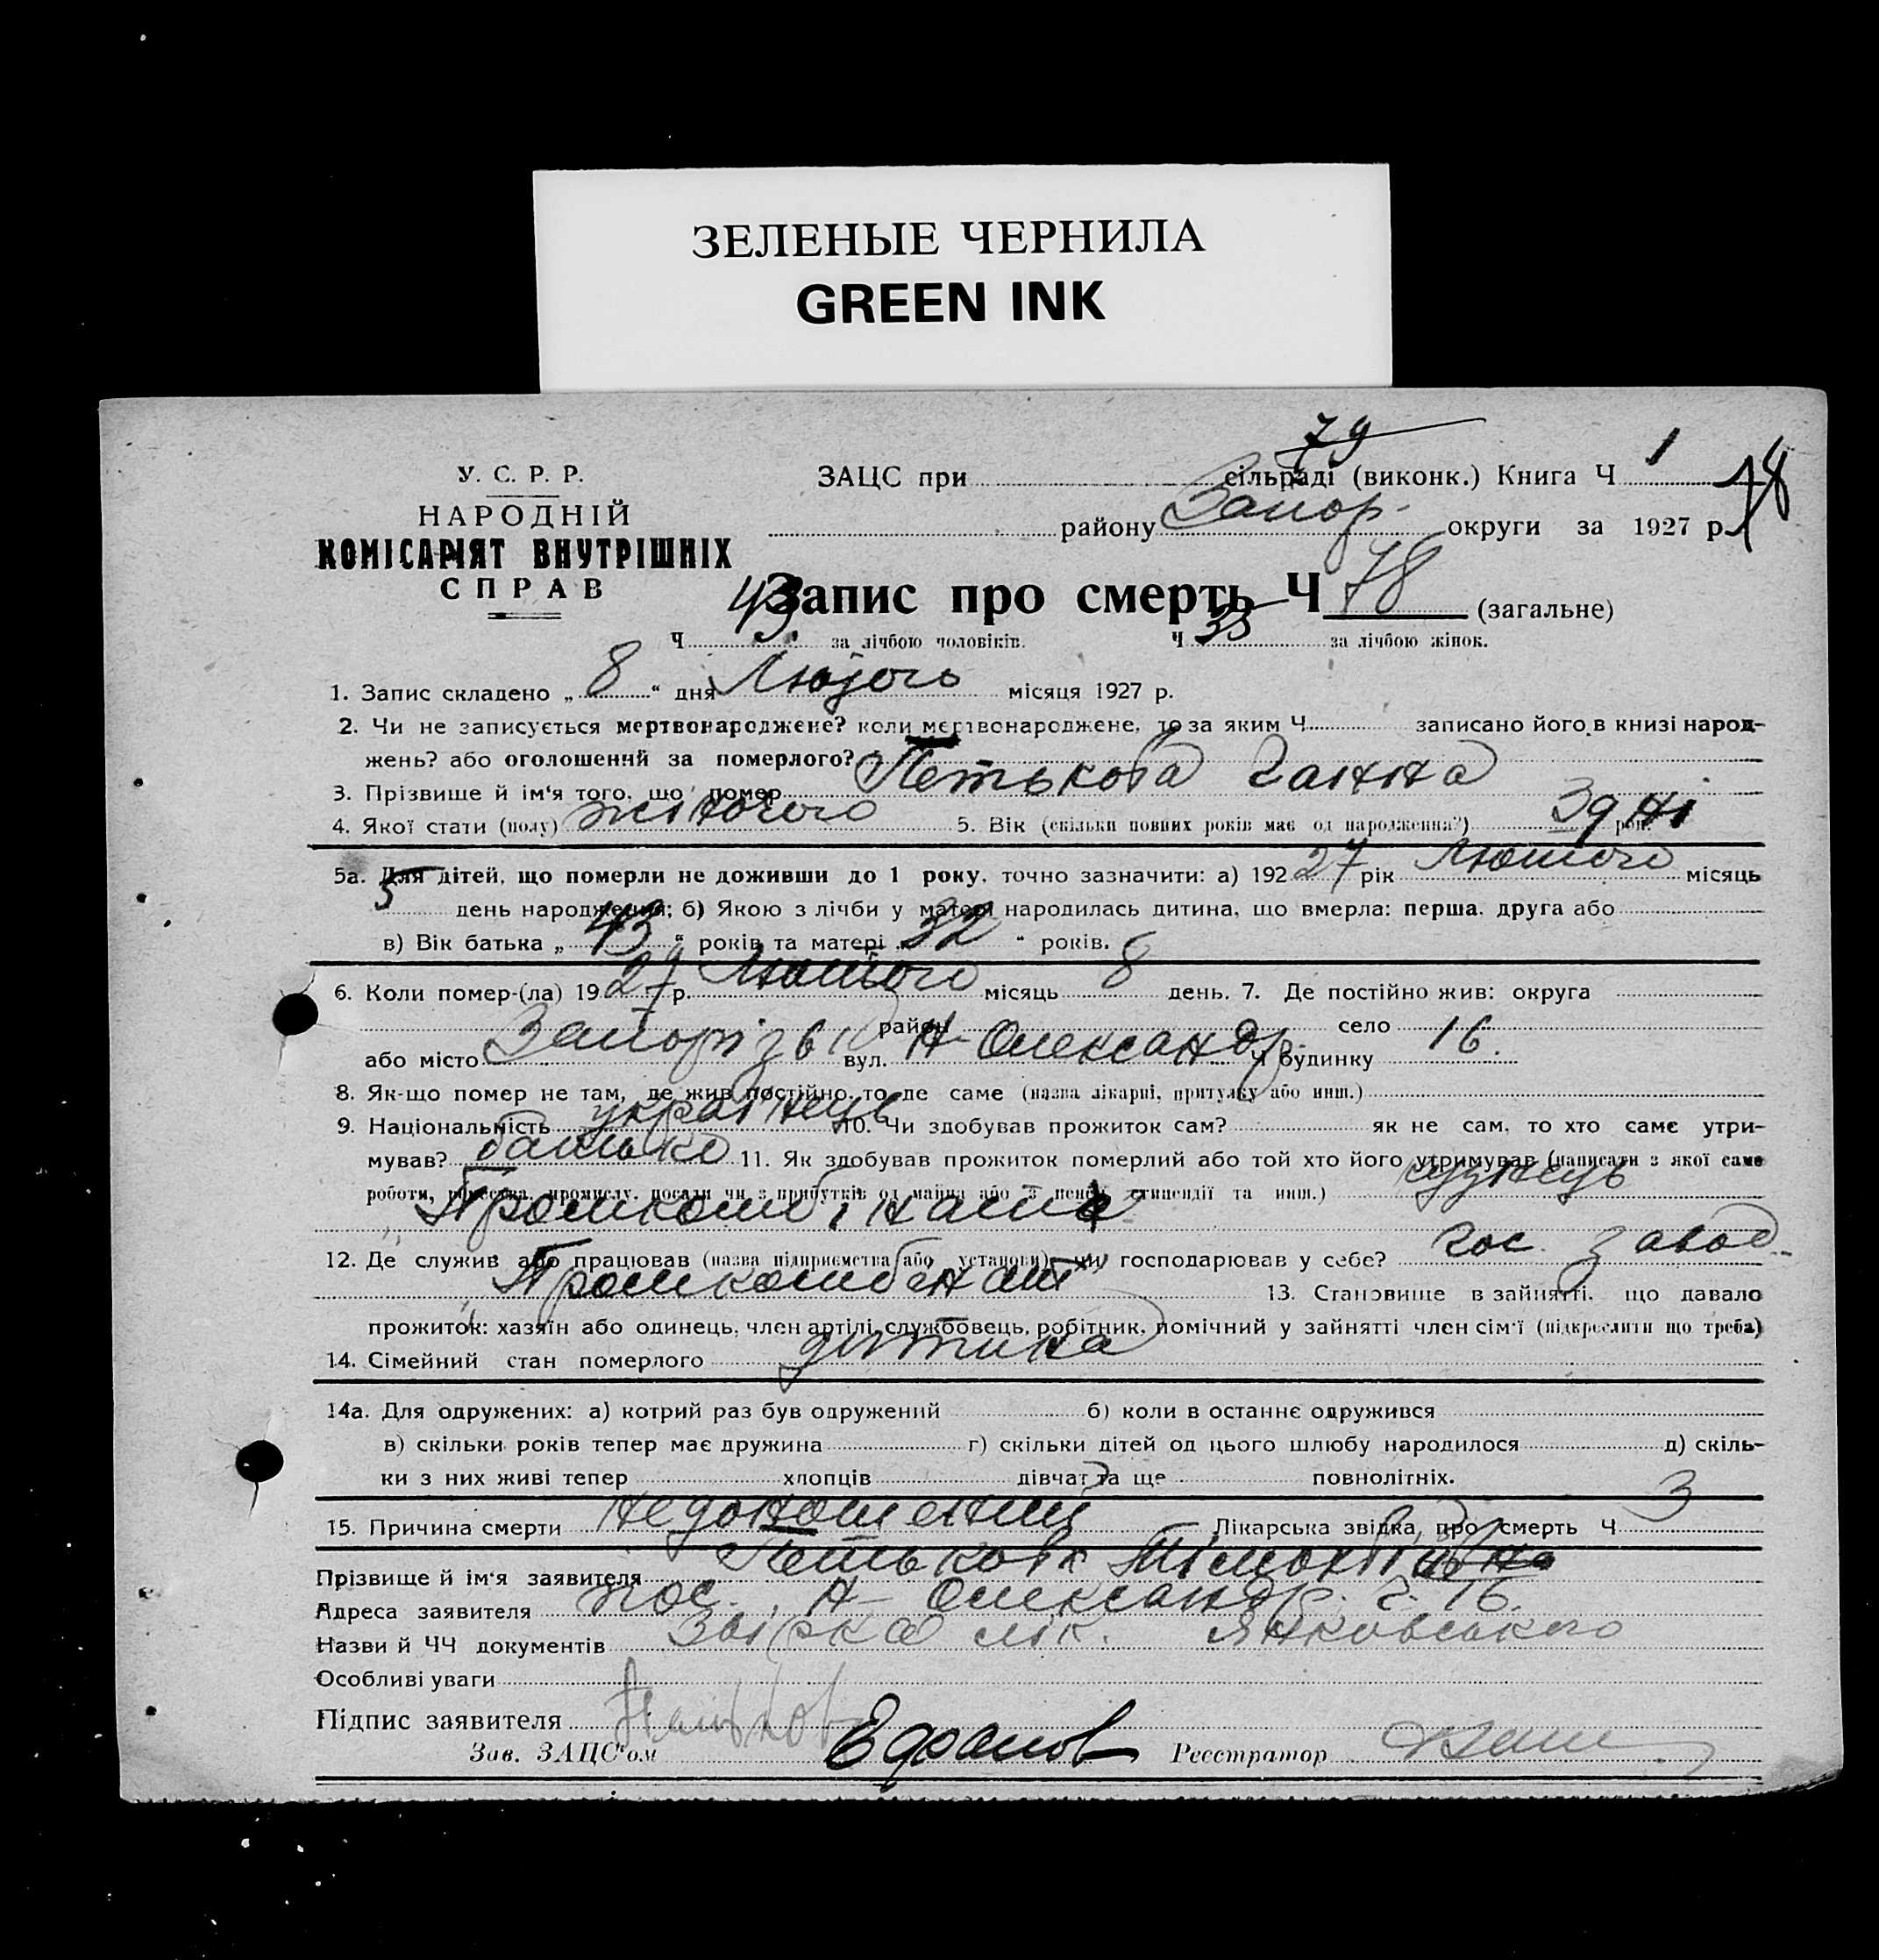 ЗЕЛЕНЫЕ ЧЕРНИЛА
GREEN INK
79
У. С. Р. Р.
ЗАЦС при сільраді (виконк.) Книга Ч 1
78
НАРОДНІЙ
району Запор. округи за 1927 р.
КОМІСАРІЯТ ВНУТРІШНІХ
СПРАВ
Запис про смерть Ч 78 (загальне)
Ч 43 за лічбою чоловіків. Ч 35 за лічбою жінок.
1. Запис складено „ 8 “ дня Лютого місяця 1927 р.
2. Чи не записується мертвонароджене? коли мертвонароджене, то за яким Ч записано його в книзі народ-
жень? або оголошений за померлого?
3. Прізвище й ім'я того, що помер Петькова Ганна
4. Якої стати (полу) жіночого 5. Вік (скільки повних років має од народження?) 3 дні рок.
5а. Для дітей, що померли не доживши до 1 року, точно зазначити: а) 192 27 рік Лютого місяць
5 день народження; б) Якою з лічби у матері народилась дитина, що вмерла: перша, друга або
в) Вік батька „ 43 “ років та матері „ 32 “ років.
6. Коли помер-(ла) 19 27 р. Лютого місяць 8 день. 7. Де постійно жив: округа
район село
або місто Запоріжжя вул. Н-Олександр. Ч будинку 16.
8. Як-що помер не там, де жив постійно, то де саме (назва лікарні, притулку або инш.)
9. Національність українець 10. Чи здобував прожиток сам? як не сам, то хто саме утри-
мував? батько 11. Як здобував прожиток померлий або той хто його утримував (написати з якої саме
роботи, ремества, промислу, посади чи з прибутків од майна або з пенсії, стипендії та инш.)
Промкомбінат
12. Де служив або працював (назва підприємства або установи), чи господарював у себе? Гос. завод
„Промкомбенат“ 13. Становище в зайнятті, що давало
прожиток: хазяїн або одинець, член артілі, службовець, робітник, помічний у зайнятті член сім'ї (підкреслити що треба)
14. Сімейний стан померлого дитина
14а. Для одружених: а) котрий раз був одружений б) коли в останнє одружився
в) скільки років тепер має дружина г) скільки дітей од цього шлюбу народилося д) скіль-
ки з них живі тепер хлопців дівчат та ще повнолітніх.
15. Причина смерти недоношений Лікарська звідка про смерть Ч 3
Прізвище й ім'я заявителя Петьков
Адреса заявителя пос. Н-Олександр. 16.
Назви й ЧЧ документів лік. Янковського
Особливі уваги
Підпис заявителя
Зав. ЗАЦС'ом Реєстратор